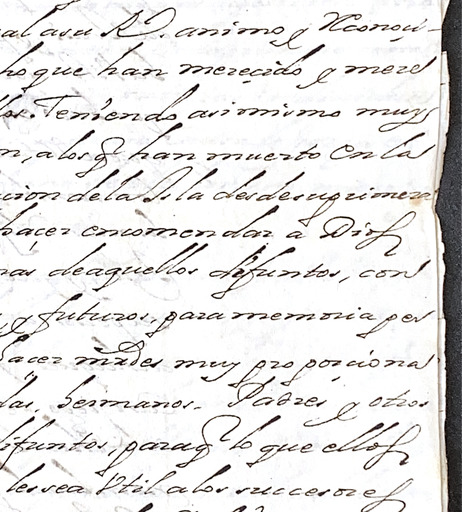 al a su Rl. animo, y reconoci-
ho que han merecido y mere
los. Teniendo asimismo muy
n, a los q han muerto en la
cion de la Isla desde su primera
hacer encomendar a Dios
mas de aquellos difuntos, con
, y futuros, para memoria per
hacer mrdes muy proporciona
das, hermanos. Padres y otros
difuntos, para q lo que ellos
les sea Vtil a los succesores